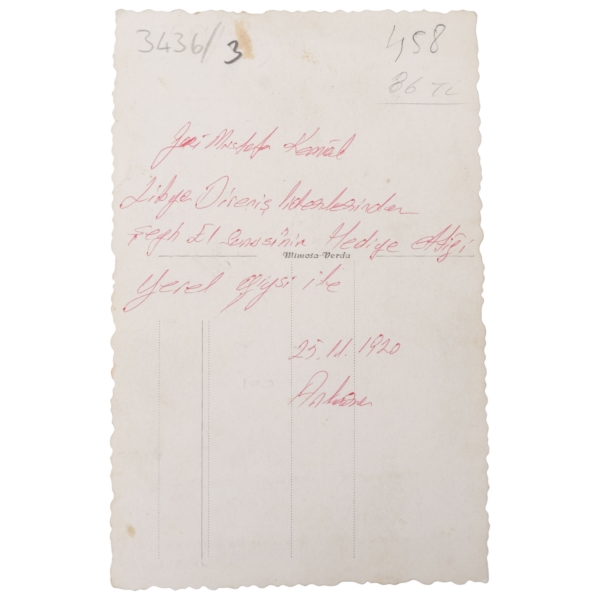 3436/3
458
86 TL
Gazi Mustafa Kemâl
Libya Direniş liderlerinden
Şeyh El Senusi'nin Hediye Ettiği
Mimosa-Verda
Yerel giysi ile
25.11.1920
Ankara